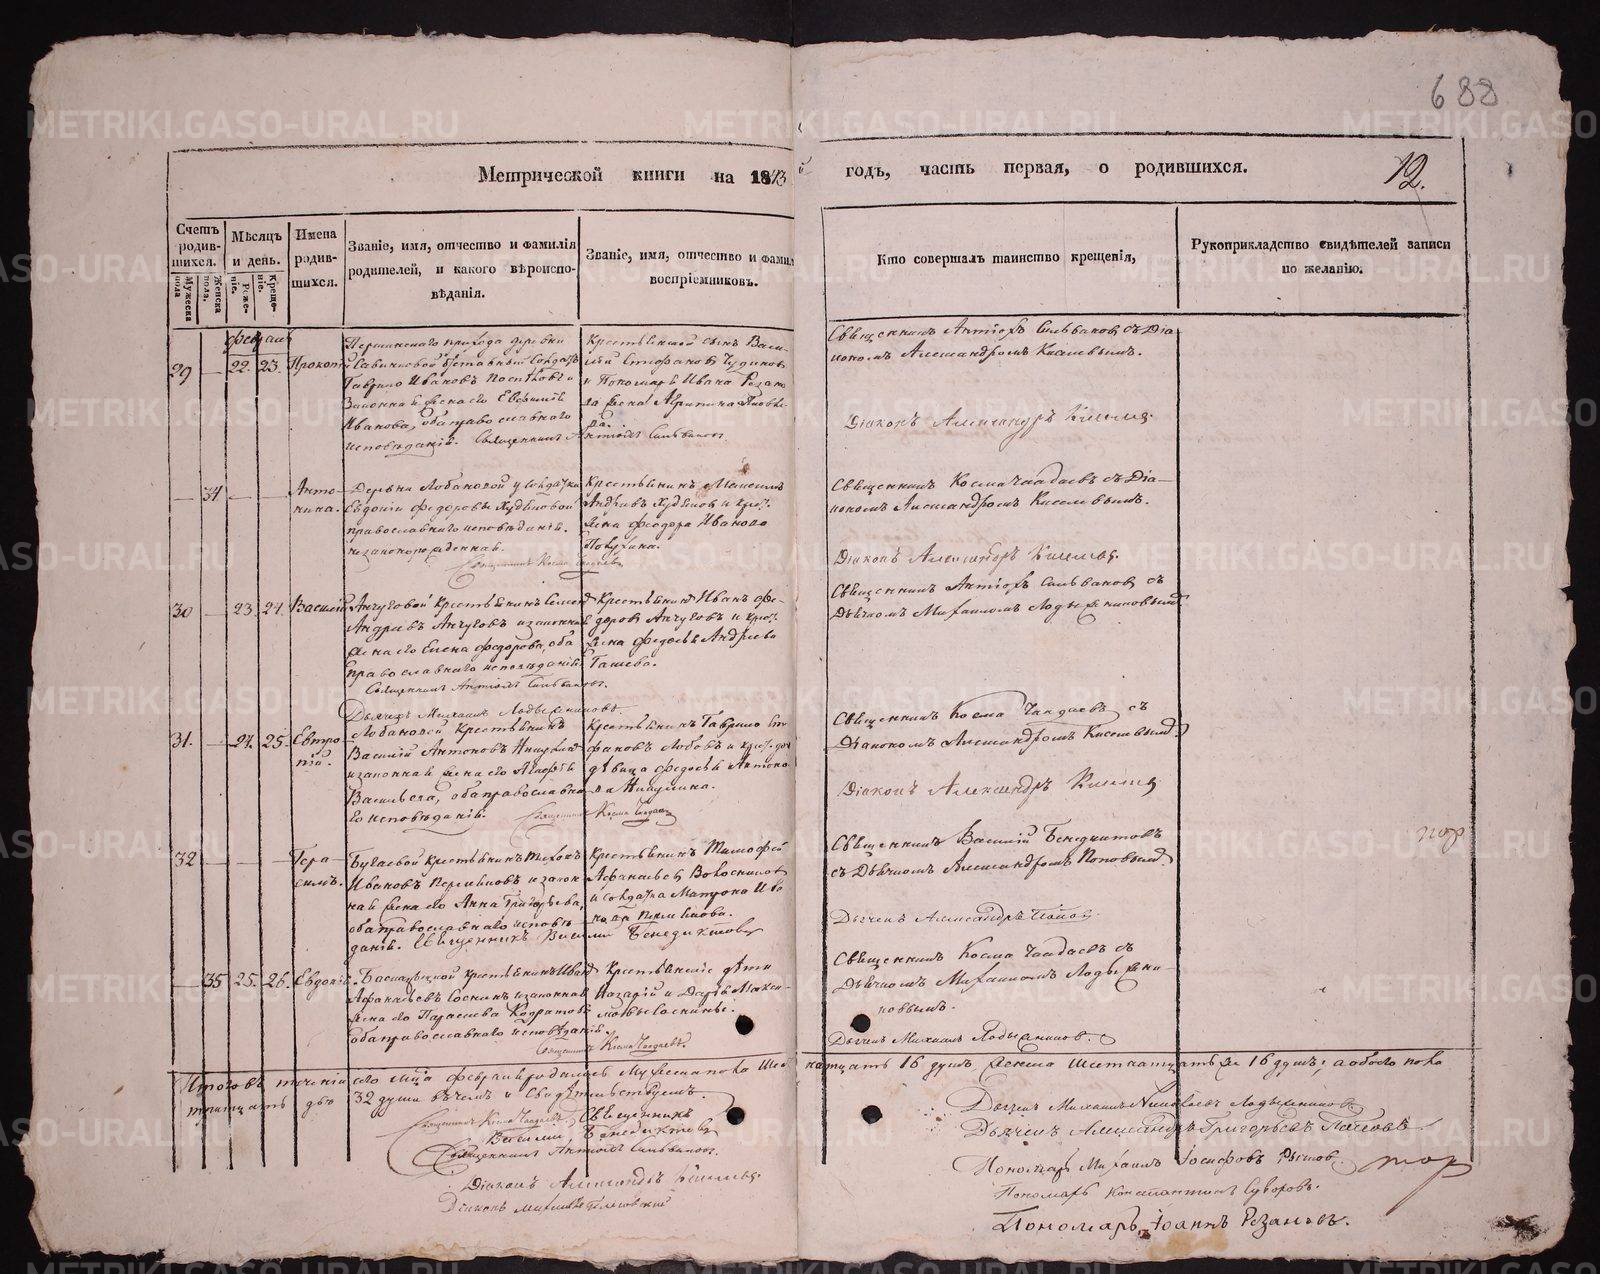 688
Метрической книги на 1843
й годъ, часть первая, о родившихся.
12.
Счетъ родившихся.
Мужеска пола
Женска пола.
Мѣсяцъ и день.
Рожденіе.
Крещеніе.
Имена родившихся.
Званіе, имя, отчество и фамилія
родителей, и какого вѣроиспо-
вѣданія.
Званіе, имя, отчество и фамил
воспріемниковъ.
Кто совершалъ таинство крещенія,
Рукоприкладство свидѣтелей записи
по желанію.
февраль
29 — 22. 23. Прокопій
прихода деревни
Гаврило Ивановъ
законная жена его Евфимія
Иванова, оба православнаго
исповѣданія. Священникъ Антіохъ Сильвановъ
Крестьянской сынъ Васи-
лій Стефановъ Чудиновъ
и Пономаря Ивана Резано
ва жена Агрипина Яковле-
ва.
Священникъ Антіохъ Сильвановъ съ Діа
кономъ Александромъ Киселевымъ.
Діаконъ Александръ Киселевъ
— 34 — — Анто-
нина.
Деревни Лобановой у солдатки
Евдокіи Федоровы Худяковой
православнаго исповѣданія.
незаконорожденная.
Священникъ Косма Чаадаевъ
Крестьянинъ
Андреевъ Худяковъ и крес.
жена Феодора Иванова
Священникъ Косма Чаадаевъ съ Діа—
кономъ Александромъ Киселевымъ.
Діаконъ Александръ Киселевъ.
30 — 23. 24. Василій
Анчуговой крестьянинъ Семенъ
Андреевъ Анчуговъ и законная
жена его Елена Федорова, оба
православнаго исповѣданія.
Священникъ Антіохъ Сильвановъ.
Дьячекъ Михаилъ Лодыжниковъ.
Крестьянинъ Иванъ Фе-
доровъ Анчуговъ и крес.
жена Федосья Андреева
Священникъ Антіохъ Сильвановъ съ
Дьячкомъ Михаиломъ Лодыжниковымъ
31. — 24. 25. Евтро-
пій.
Лобановой крестьянинъ
Василій Антоновъ
и законная жена его Агафія
Васильева, оба православна
го исповѣданія.
Священникъ Косма Чаадаевъ
Крестьянинъ Гаврило Сте
фановъ Лобовъ и крес. доч
дѣвица Федосья Антоно
ва
Священникъ Косма Чаадаевъ съ
Діакономъ Александромъ Киселевымъ.
Діаконъ Александръ Киселевъ
32 — — — Гера
симъ.
Бугаевой крестьянинъ Тихонъ
Ивановъ Перминовъ и закон
ная жена его Анна Григорьева,
оба православнаго исповѣ
данія. Священникъ Василій Бенедиктовъ
Крестьянинъ Тимофей
Афанасьевъ
и солдатка Матрона Ива
нова Перминова.
Священникъ Василій Бенедиктовъ
съ Дьячкомъ Александромъ Поповымъ.
Дьячекъ Александръ Поповъ.
— 35 25. 26. Евдокія
крестьянинъ Иванъ
Афанасьевъ Соснинъ и законная
жена его Параскева Кодратова
оба православнаго исповѣданія.
Священникъ Косма Чаадаевъ.
Крестьянскіе дѣти
Назарій и Дарья Макси-
мовы Соснины.
Священникъ Косма Чаадаевъ съ
Дьячкомъ Михаиломъ Лодыжни-
ковымъ.
Дьячекъ Михаилъ Лодыжниковъ.
Итого въ теченіи сего мѣца февраля родилось мужеска пола шес
натцать 16 душъ женска шестнатцать же 16 душъ; а обоего пола
тритцать двѣ 32 души въ чемъ и свидѣтельствуемъ.
Священникъ Косма Чаадаевъ, Священникъ
Василій Бенедиктовъ
Священникъ Антіохъ Сильвановъ.
Діаконъ Александръ Киселевъ.
Діаконъ
Дьячекъ Михаилъ Лодыжниковъ
Дьячекъ Александръ Григорьевъ Поповъ
Пономарь Михаилъ Іосифовъ
Пономарь Константинъ Суворовъ.
Пономарь Іоаннъ Резановъ.
METRIKI.GASO-URAL.RU